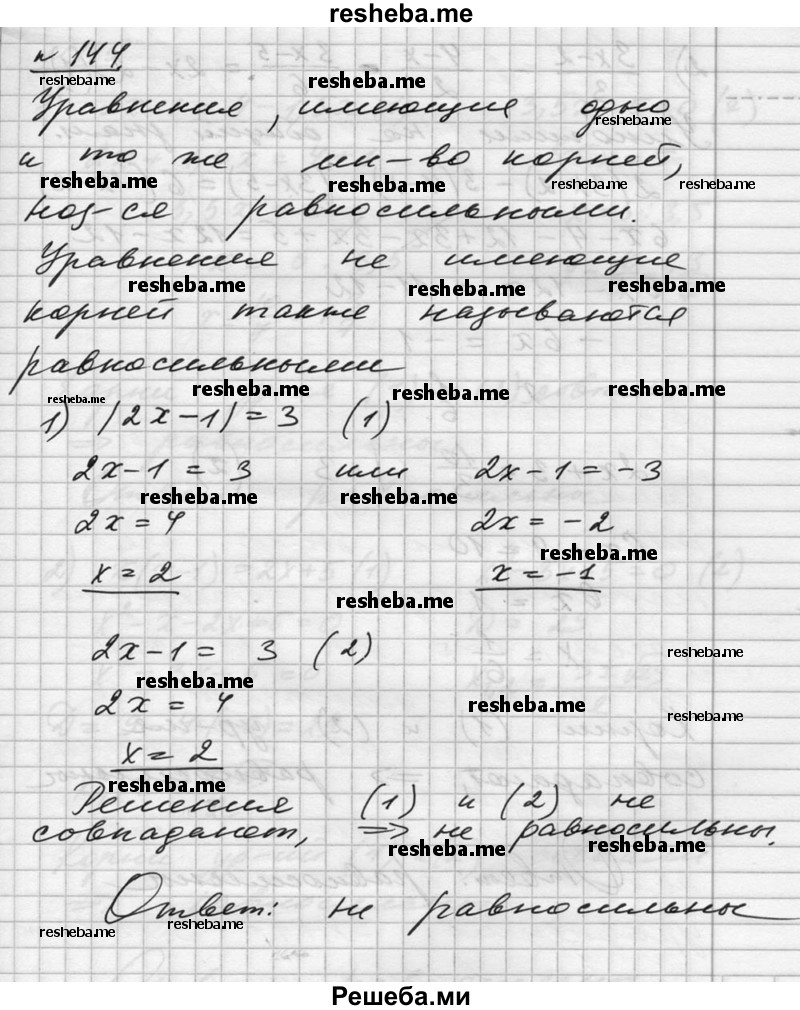 resheba.me
№ 144.
resheba.me resheba.me
Уравнения, имеющие одно
resheba.me
и то же мн-во корней,
resheba.me resheba.me resheba.me resheba.me
наз-ся равносильными.
Уравнения не имеющие
resheba.me resheba.me resheba.me
корней также называются
равносильными
resheba.me resheba.me resheba.me resheba.me
1) |2x-1| = 3 (1)
2x-1 = 3 или 2x-1 = -3
resheba.me resheba.me
2x = 4 2x = -2
resheba.me
x = 2 x = -1
resheba.me
2x-1 = 3 (2)
resheba.me
resheba.me
2x = 4
resheba.me
resheba.me
x = 2
resheba.me
Решения (1) и (2) не
совпадают, => не равносильны.
resheba.me resheba.me
Ответ: не равносильны
resheba.me resheba.me
Решеба.ми